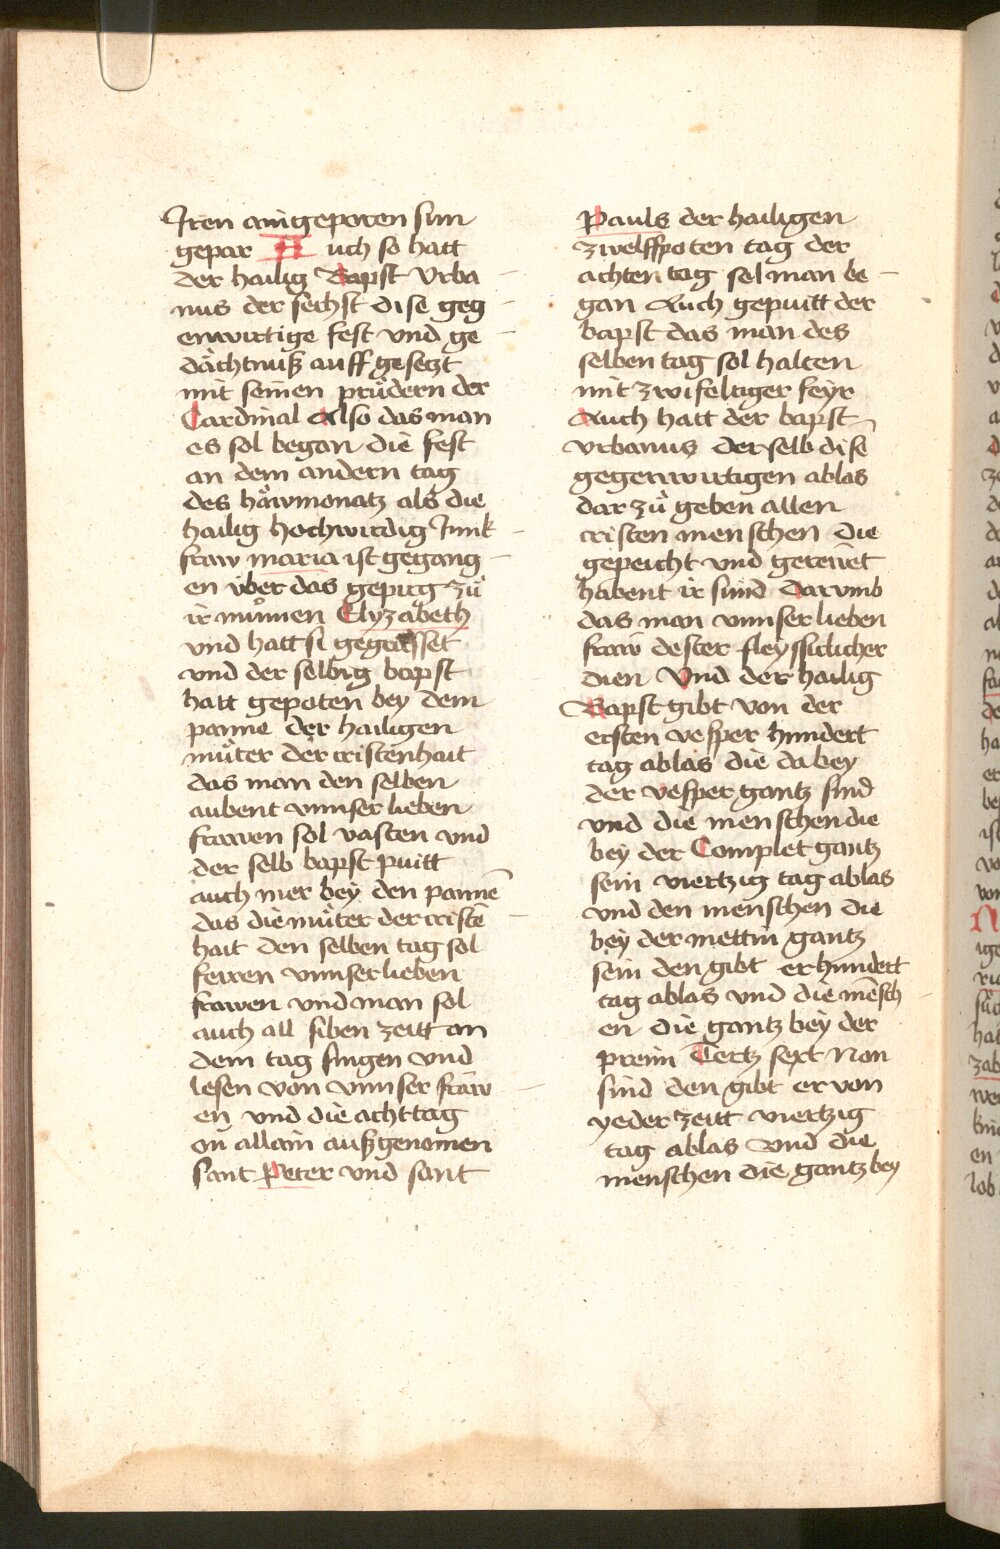 Iren aingeporen sun
gepar Auch so hatt
der hailig Bapst Vrba
nus der sechst dise geg
enwurtige fest vnd ge
dächtnuß auff gesetzt
mit seinen prüdern der
Cardinal Also das man
es sol began die fest
an dem andern tag
des häwmonatz als die
hailig hochwirdig Junk
fraw maria ist gegang
en über das gepirg zů
ir můmen Elyzabeth
vnd hatt si gegrüsset
vnd der selbig bapst
hatt gepoten bey dem
panne der hailigen
můter der cristenhait
das man den selben
aubent vnnser lieben
frawen sol vasten vnd
der selb bapst puitt
auch mer bey den pannē
das die můter der cristē
hait den selben tag sol
feiren vnnser lieben
frawen vnd man sol
auch all siben zeitt an
dem tag singen vnd
lesen von vnnser fraw
en vnd die acht tag
on allain außgenomen
sant Peter vnd sant
Pauls der hailigen
zwelffpoten tag der
achten tag sol man be
gan Auch gepuitt der
bapst das man des
selben tag sol halten
mit zwifeltiger feyr
Auch hatt der bapst
vrbanus der selb dise
gegenwurtigen ablas
dar zů geben allen
cristen menschen die
gepeicht vnd gereüet
habent ir sünd Darvmb
das man vnnser lieben
fraw dester fleyssiclicher
dien Vnd der hailig
Bapst gibt von der
ersten vesper hundert
tag ablas die da bey
der vesper gantz sind
vnd die menschen die
bey der Complet gantz
sein viertzig tag ablas
vnd den menschen die
bey der mettin gantz
sein den gibt er hundert
tag ablas vnd die mēsch
en die gantz bey der
preim Tertz sext Non
sind den gibt er von
yeder zeitt viertzig
tag ablas Vnd die
menschen die gantz bey